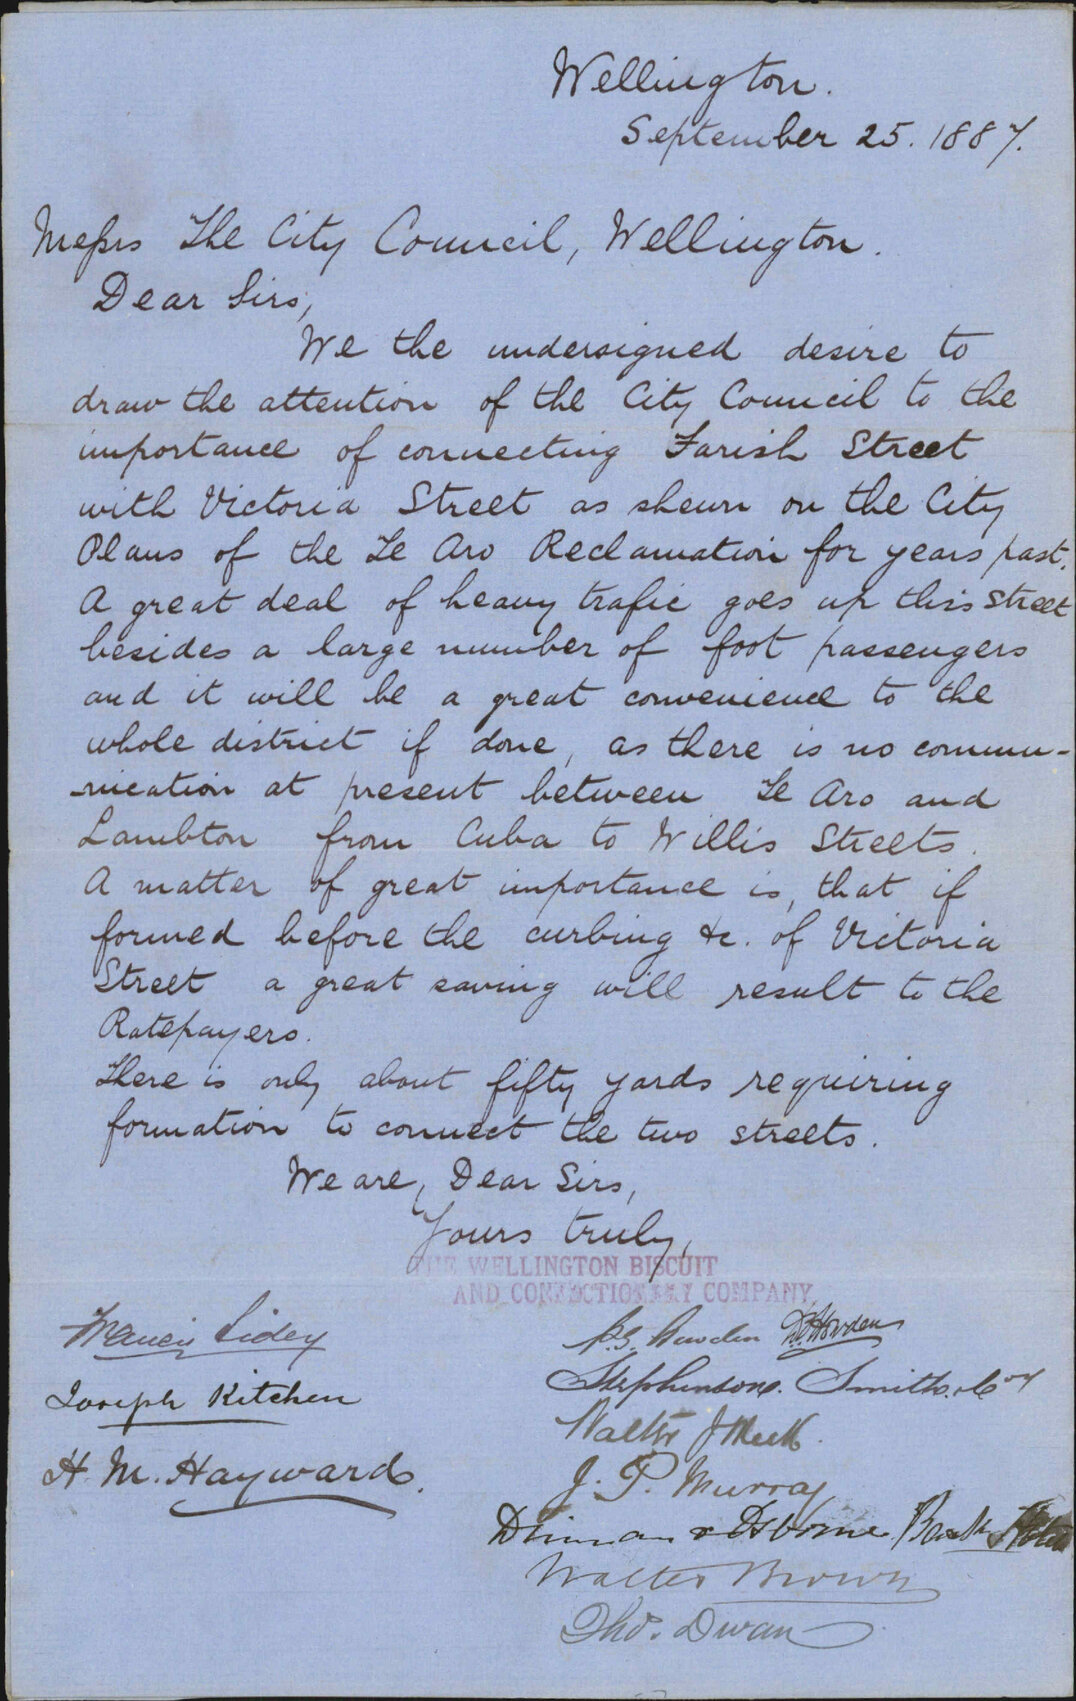 Wellington.
September 25. 1887.
Messrs The City Council, Wellington.
Dear Sirs,
We the undersigned desire to
draw the attention of the City Council to the
importance of connecting Farish Street
with Victoria Street as shewn on the City
Plans of the Te Aro Reclamation for years past.
A great deal of heavy trafic goes up this street
besides a large number of foot passengers
and it will be a great convenience to the
whole district if done, as there is no commu-
-nication at present between Te Aro and
Lambton from Cuba to Willis Streets.
A matter of great importance is, that if
formed before the curbing &c. of Victoria
Street a great saving will result to the
Ratepayers.
There is only about fifty yards requiring
formation to connect the two streets.
We are, Dear Sirs,
Yours truly,
THE WELLINGTON BISCUIT
AND CONFECTIONERY COMPANY
Francis Sidey
Howden
Joseph Kitchen
Stephenson. Smith & Coy
Walter J Meek.
H. M. Hayward.
J. P. Murray
& Osborne. Hotel
Walter Brown
Tho. Dwan